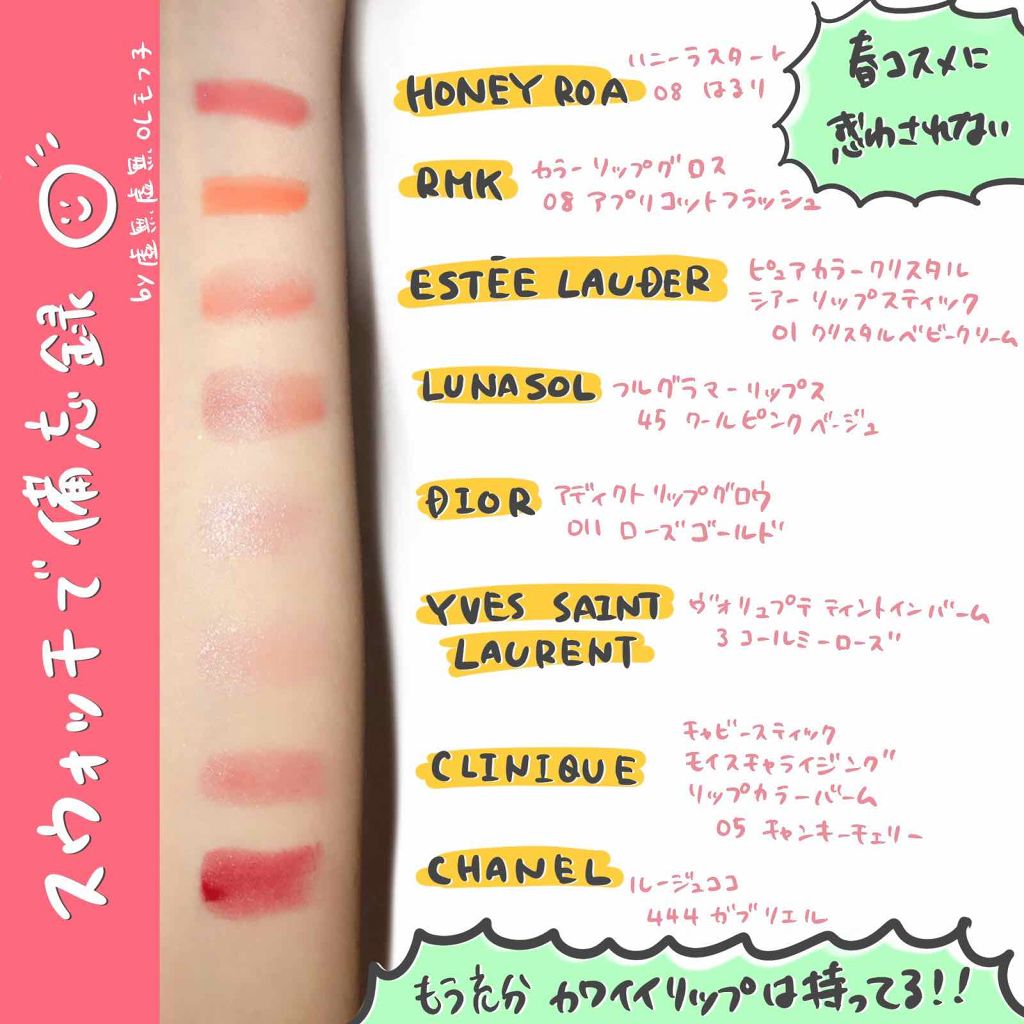 スウォッチで備忘録
春コスメに
惑わされない
HONEY ROA
ハニーラスター
08 はるり
RMK
カラーリップグロス
08 アプリコットフラッシュ
ESTĒE LAUDER
ピュアカラークリスタル
シアーリップスティック
01 クリスタルベビークリーム
LUNASOL
フルグラマーリップス
45 クールピンクベージュ
DIOR
アディクトリップグロウ
011 ローズゴールド
YVES SAINT
LAURENT
ヴォリュプテ ティントインバーム
3 コールミーローズ
CLINIQUE
チャビースティック
モイスチャライジング
リップカラーバーム
05 チャンキーチェリー
CHANEL
ルージュココ
444 ガブリエル
もう充分 カワイイリップは持ってる!!